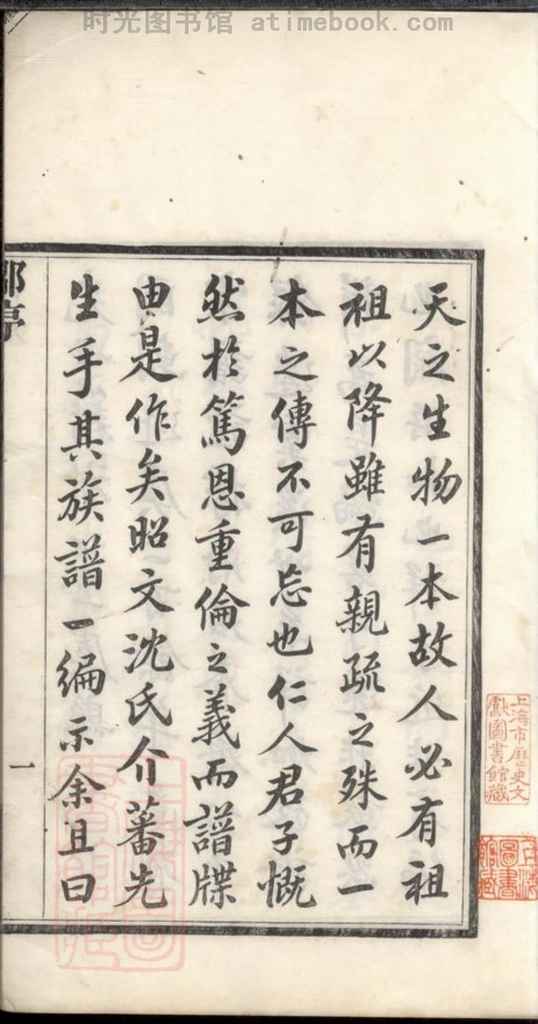 时光图书馆 - atimebook.com -
天之生物一本故人必有祖
祖以降雖有親疏之殊而一
本之傳不可忘也仁人君子慨
然於篤恩重倫之義而譜牒
由是作矣昭文沈氏介蕃先
生手其族譜一編示余且曰
一
上海市歷史文
獻圖書館藏